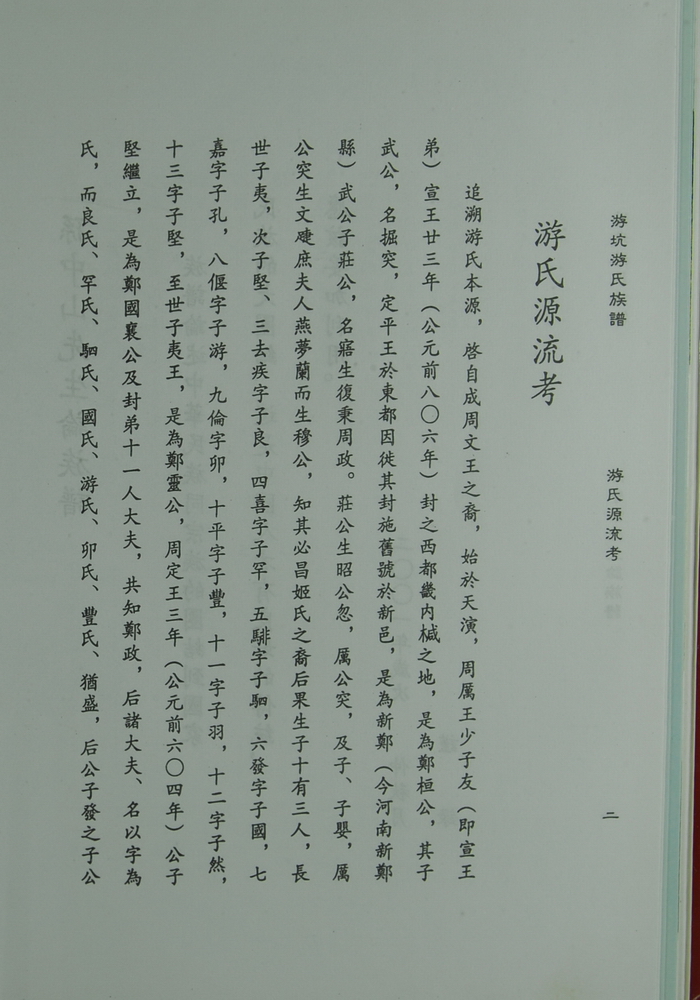 游坑游氏族譜
游氏源流考
二
游氏源流考
追溯游氏本源，啓自成周文王之裔，始於天演，周厲王少子友（即宣王
弟）宣王廿三年（公元前八〇六年）封之西都畿內棫之地，是為鄭桓公，其子
武公，名掘突，定平王於東都因徙其封施舊號於新邑，是為新鄭（今河南新鄭
縣）武公子莊公，名寤生復秉周政。莊公生昭公忽，厲公突，及子、子嬰，厲
公突生文踕庶夫人燕夢蘭而生穆公，知其必昌姬氏之裔后果生子十有三人，長
世子夷，次子堅、三去疾字子良，四喜字子罕，五騑字子駟，六發字子國，七
嘉字子孔，八偃字子游，九倫字卯，十平字子豐，十一字子羽，十二字子然，
十三字子堅，至世子夷王，是為鄭靈公，周定王三年（公元前六〇四年）公子
堅繼立，是為鄭國襄公及封弟十一人大夫，共知鄭政，后諸大夫、名以字為
氏，而良氏、罕氏、駟氏、國氏、游氏、卯氏、豐氏、猶盛，后公子發之子公